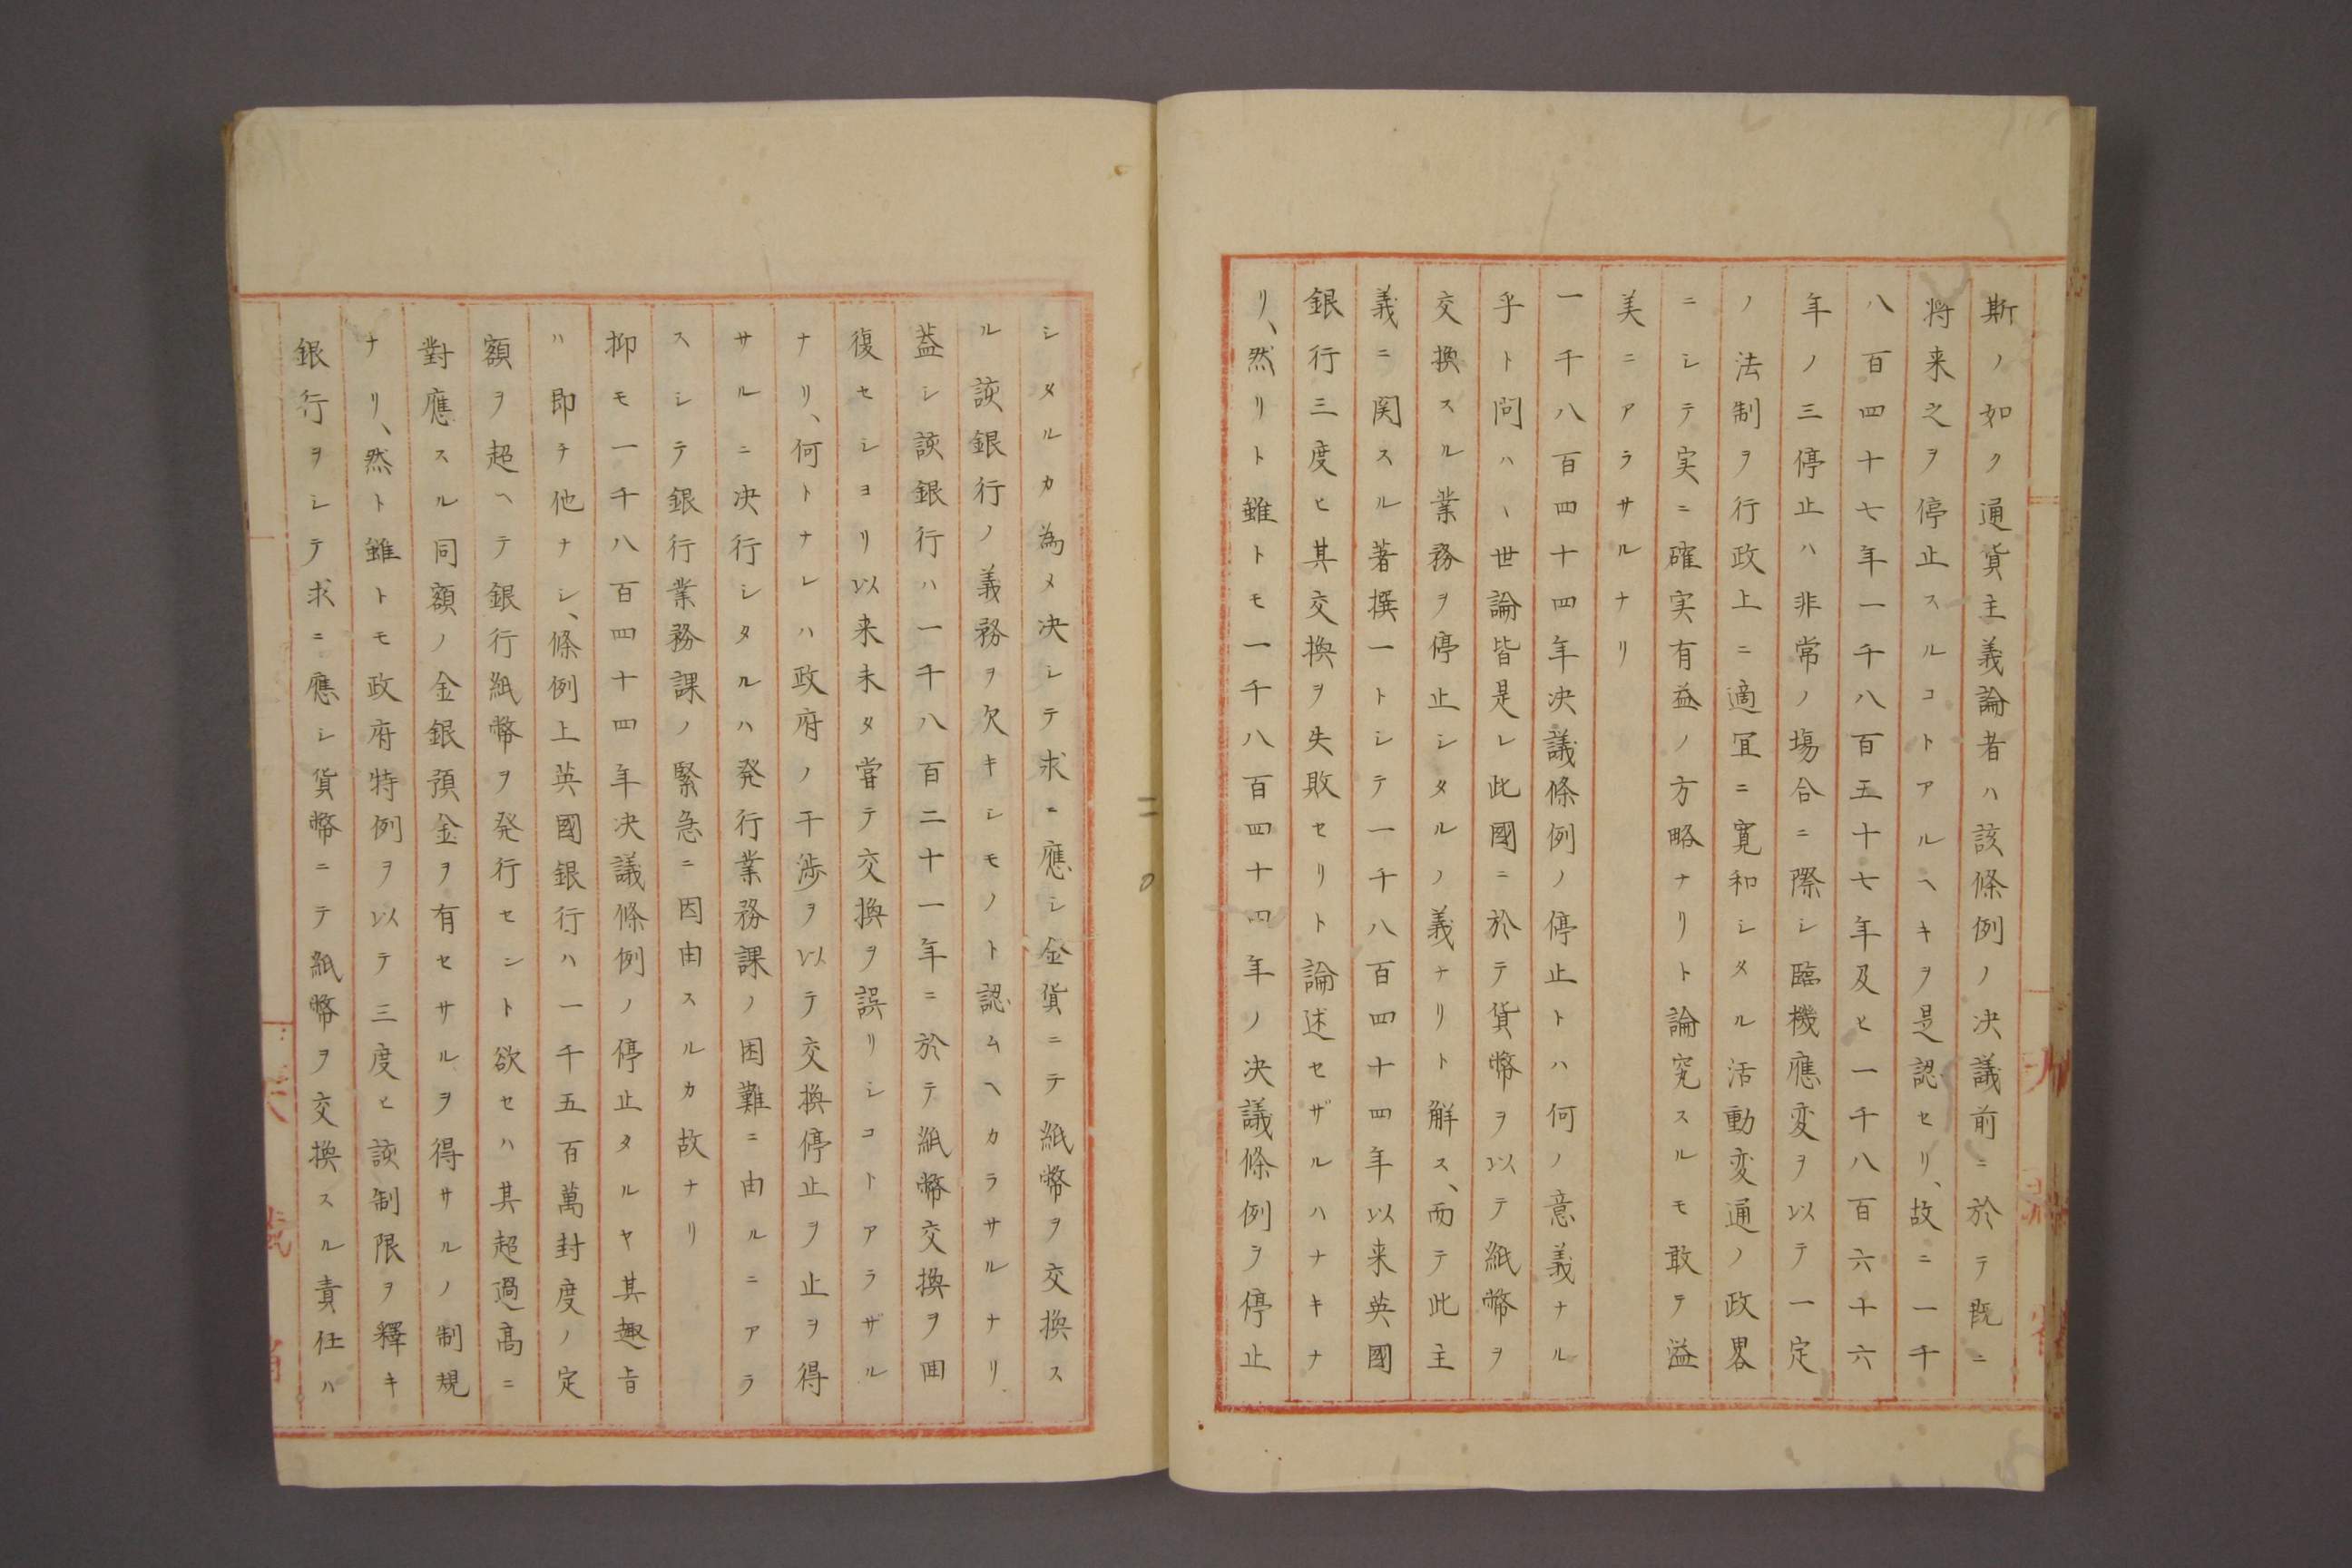 斯ノ如ク通貨主義論者ハ該條例ノ决議前ニ於テ既ニ
将来之ヲ停止スルコトアルヘキヲ是認セリ、故ニ一千
八百四十七年一千八百五十七年及ヒ一千八百六十六
年ノ三停止ハ非常ノ塲合ニ際シ臨機應変ヲ以テ一定
ノ法制ヲ行政上ニ適冝ニ寛和シタル活動変通ノ政畧
ニシテ実ニ確実有益ノ方略ナリト論究スルモ敢テ溢
美ニアラサルナリ
一千八百四十四年决議條例ノ停止トハ何ノ意義ナル
乎ト問ハヽ世論皆是レ此國ニ於テ貨幣ヲ以テ紙幣ヲ
交換スル業務ヲ停止シタルノ義ナリト解ス、而テ此主
義ニ関スル著撰一トシテ一千八百四十四年以来英國
銀行三度ヒ其交換ヲ失敗セリト論述セザルハナキナ
リ、然リト雖トモ一千八百四十四年ノ决議條例ヲ停止
シメルカ為メ决シテ求ニ應シ金貨ニテ紙幣ヲ交換ス
ル該銀行ノ義務ヲ欠キシモノト認ムヘカラサルナリ
蓋シ該銀行ハ一千八百二十一年ニ於テ紙幣交換ヲ囬
復セショリ以来未タ甞テ交換ヲ誤リシコトアラザル
ナリ、何トナレハ政府ノ干渉ヲ以テ交換停止ヲ止ヲ得
サルニ决行シタルハ発行業務課ノ困難ニ由ルニアラ
スシテ銀行業務課ノ緊急ニ因由スルカ故ナリ
抑モ一千八百四十四年决議條例ノ停止タルヤ其趣旨
ハ即チ他ナシ、條例上英國銀行ハ一千五百萬封度ノ定
額ヲ超ヘテ銀行紙幣ヲ発行セント欲セハ其超過高ニ
對應スル同額ノ金銀預金ヲ有セサルヲ得サルノ制規
ナリ、然ト雖トモ政府特例ヲ以テ三度ヒ該制限ヲ釋キ
銀行ヲシテ求ニ應シ貨幣ニテ紙幣ヲ交換スル責任ハ
二〇